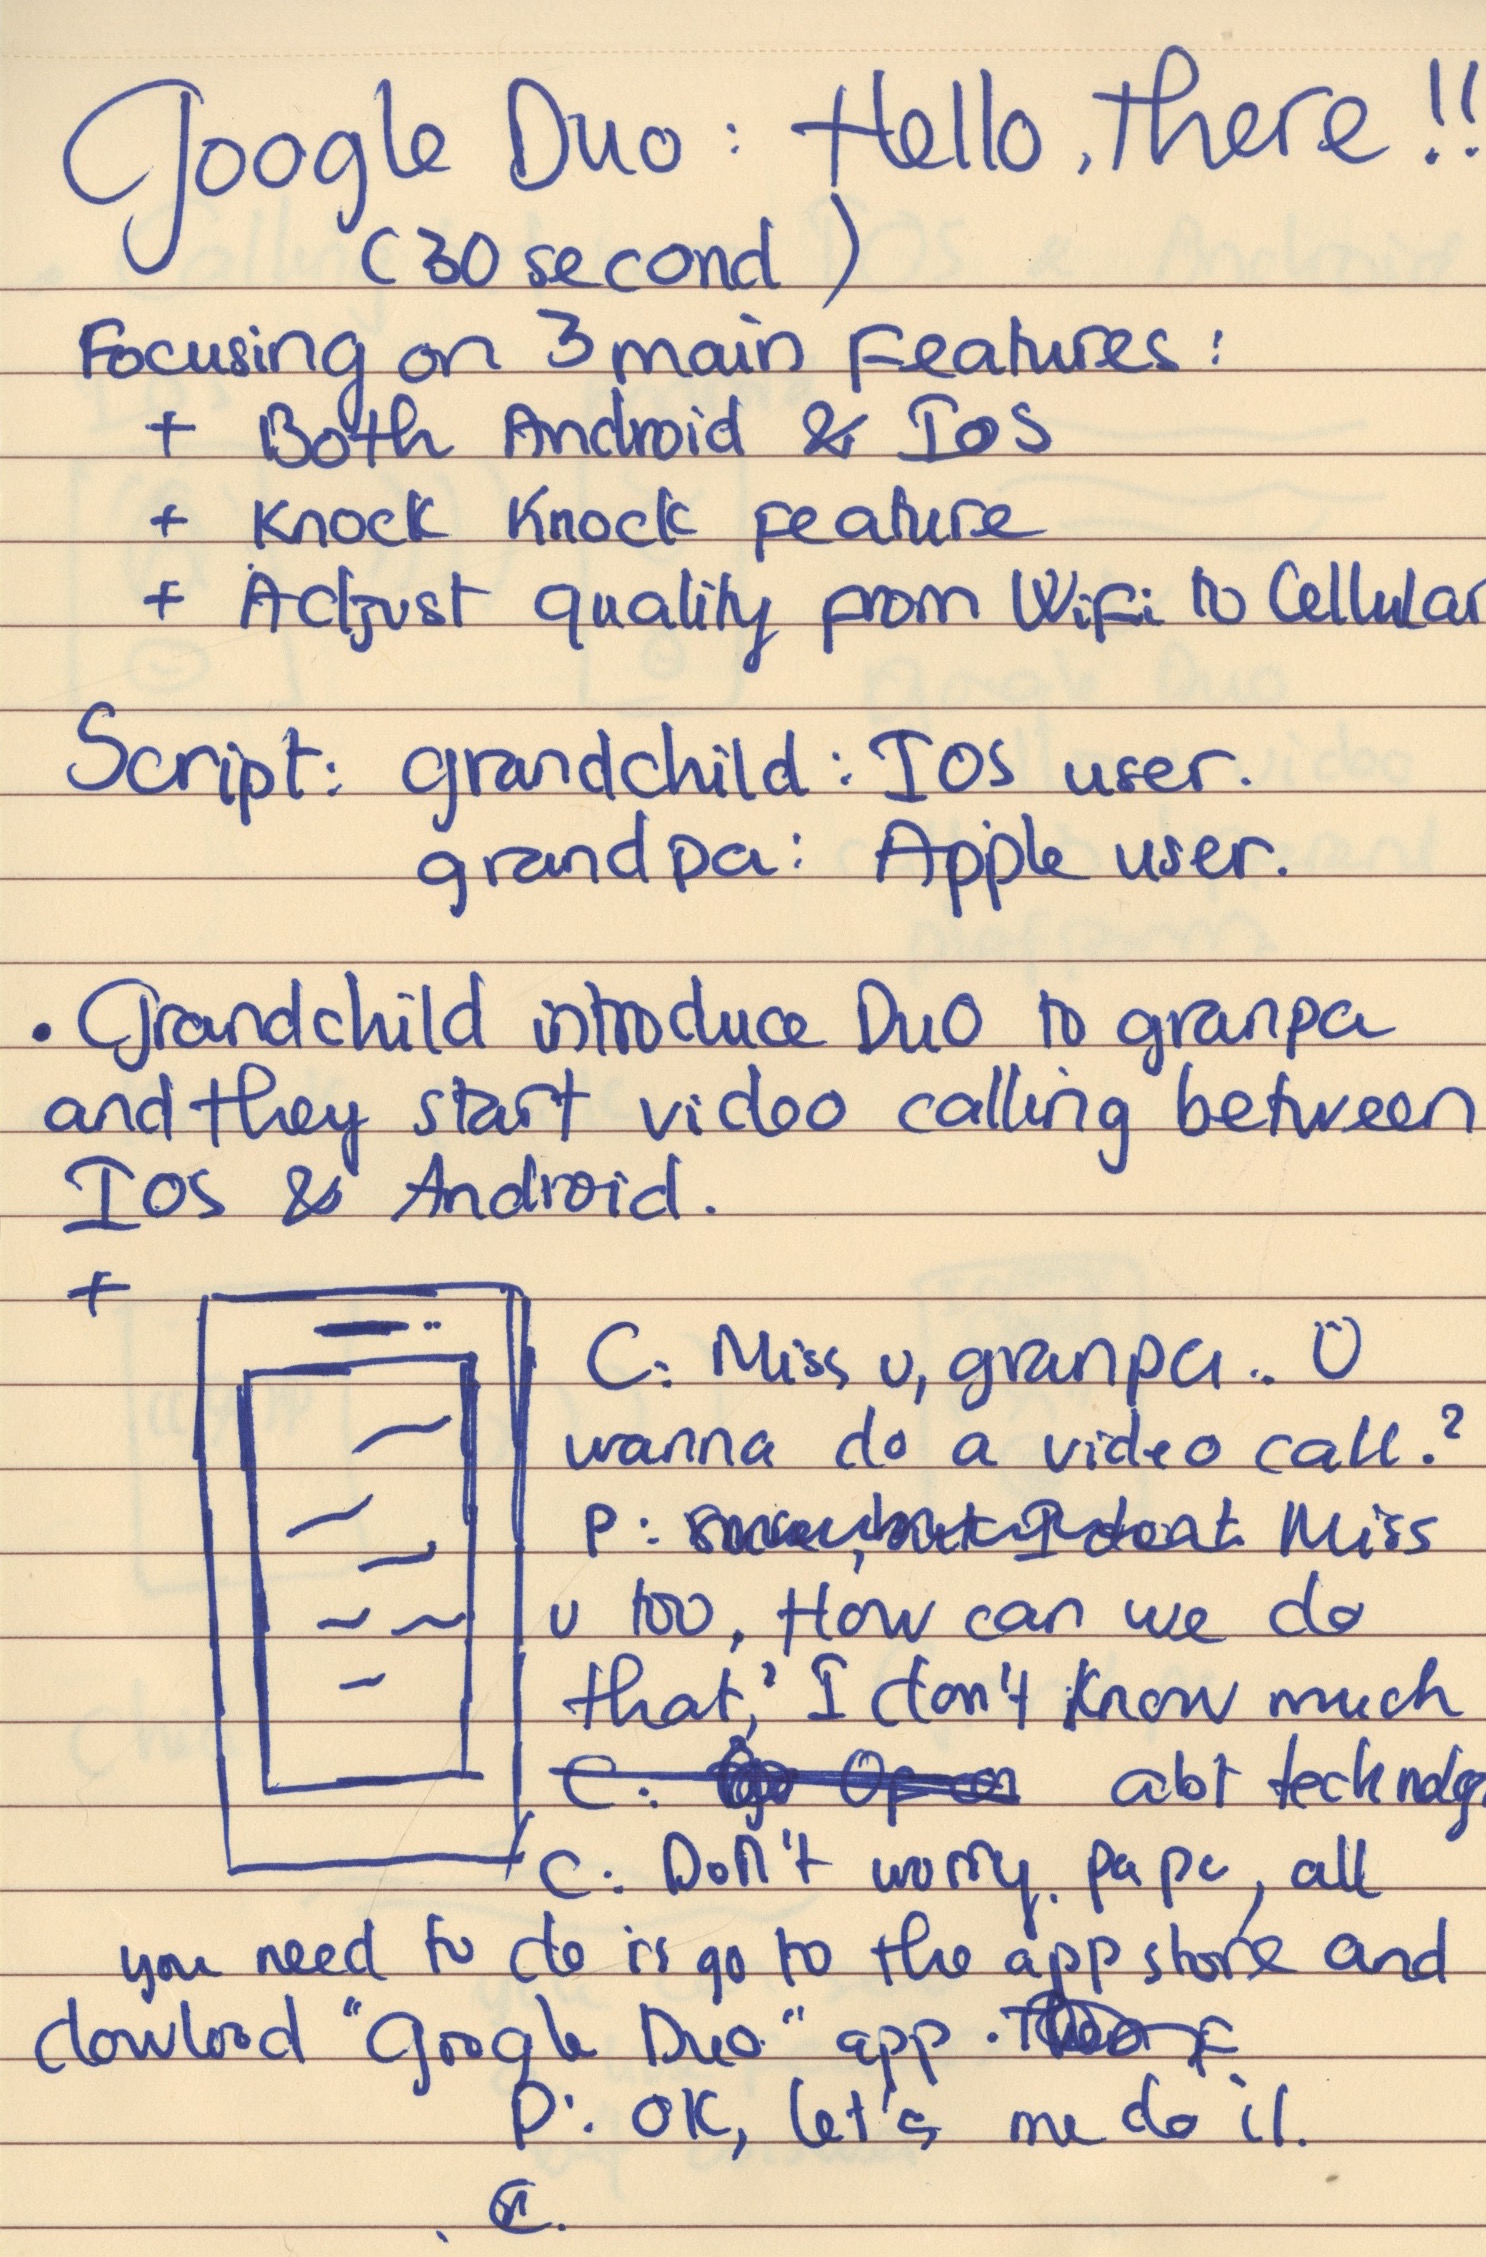 Google Duo : Hello, there !!
(30 second)
Focusing on 3 main Features :
+ Both Android & IOS
+ Knock Knock feature
+ Adjust quality from Wifi to Cellular
Script: grandchild : IOS user.
grandpa : Apple user.
• Grandchild introduce Duo to granpa
and they start video calling between
IOS & Android.
+
C: Miss u, granpa.. U
wanna do a video call.?
P: Miss
u too, How can we do
that,? I don't know much
C: Open abt technolg
C: Don't worry. papa, all
you need to do is go to the app store and
dowload "Google Duo" app.
P: OK, let's me do it.
C.